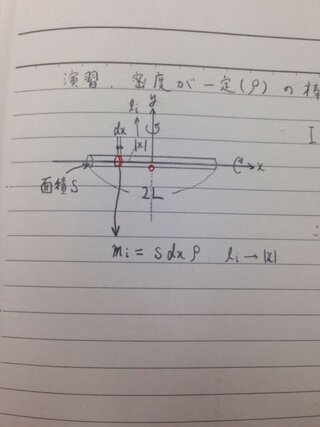 演習、密度が一定(ρ)の棒
I
li y
dx
|x|
x
面積S
2L
mi = S dx ρ li → |x|